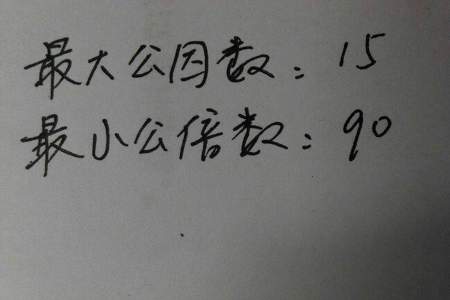 最大公因数：15
最小公倍数：90